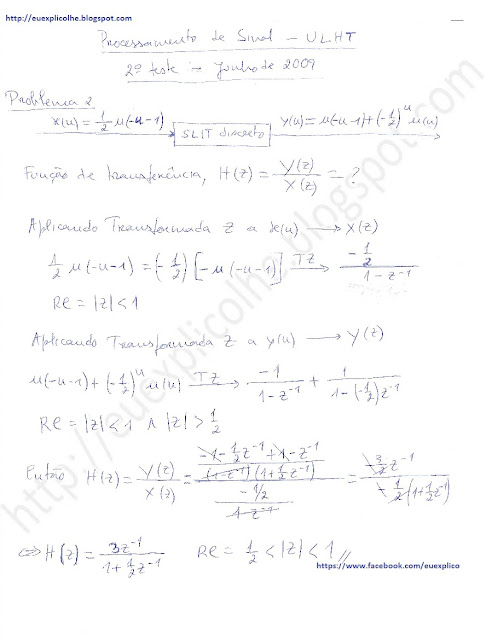 http://euexplicolhe.blogspot.com
Processamento de Sinal – ULHT
2º teste – Junho de 2009
Problema 2
x(n) = 1/2 u(-n-1) → SLIT discreto → y(n) = u(-n-1) + (-1/2)^n u(n)
Função de transferência, H(z) = Y(z)/X(z) = ?
Aplicando Transformada Z a x(n) → X(z)
1/2 u(-n-1) = (-1/2) [-u(-n-1)] TZ→ (-1/2)/(1-z^-1)
RC = |z| < 1
Aplicando Transformada Z a y(n) → Y(z)
u(-n-1) + (-1/2)^n u(n) TZ→ -1/(1-z^-1) + 1/(1-(-1/2)z^-1)
RC = |z| < 1 ∧ |z| > 1/2
Então H(z) = Y(z)/X(z) = ((-1-1/2 z^-1+1-z^-1)/((1-z^-1)(1+1/2 z^-1)))/((-1/2)/(1-z^-1)) = (-3/2 z^-1)/(-1/2 (1+1/2 z^-1))
⇔ H(z) = 3z^-1/(1+1/2 z^-1) RC = 1/2 < |z| < 1 //
https://www.facebook.com/euexplico
http://euexplicolhe.blogspot.com